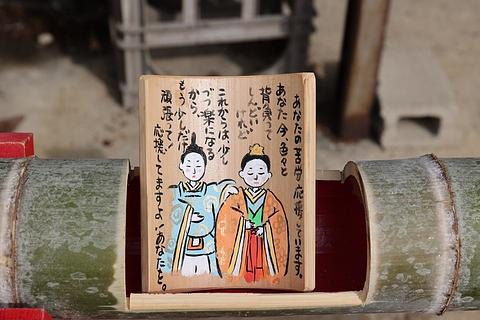 あなたの苦労応援しています。
あなた今、色々と
背負って
しんどい
けれど
これからは少し
づつ楽になる
から
もう少しだけ
頑張って!
応援してますよ!あなたを。